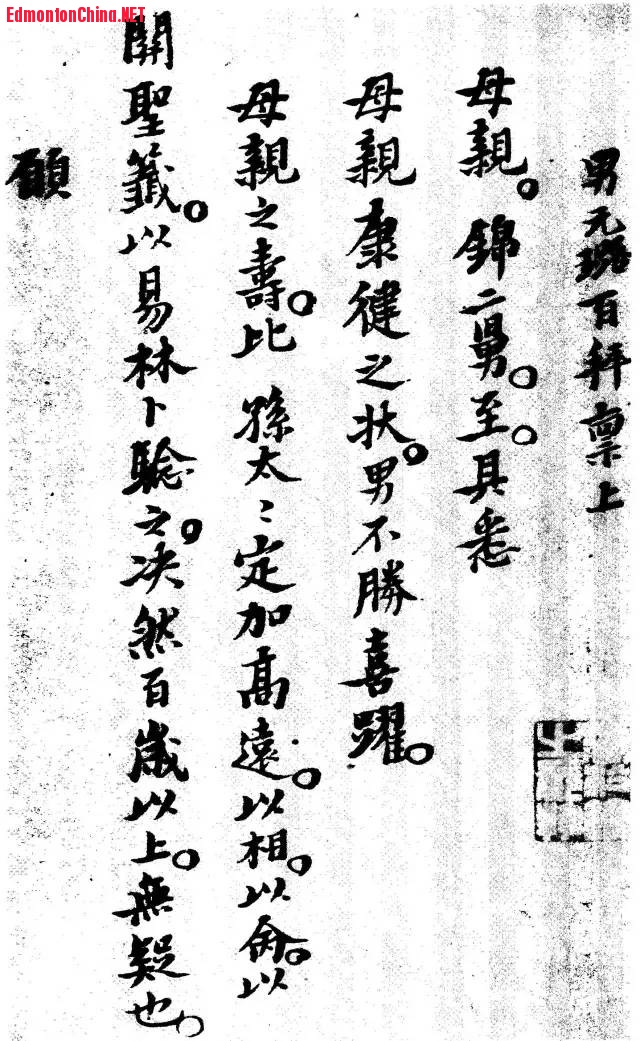 EdmontonChina.NET
男元璐百拜稟上
母親。錦二舅。至。具悉
母親康健之狀。男不勝喜躍。
母親之壽。比孫太〻定加高遠。以相。以命。以
關聖籤。以易林卜驗之。決然百歲以上。無疑也。
願